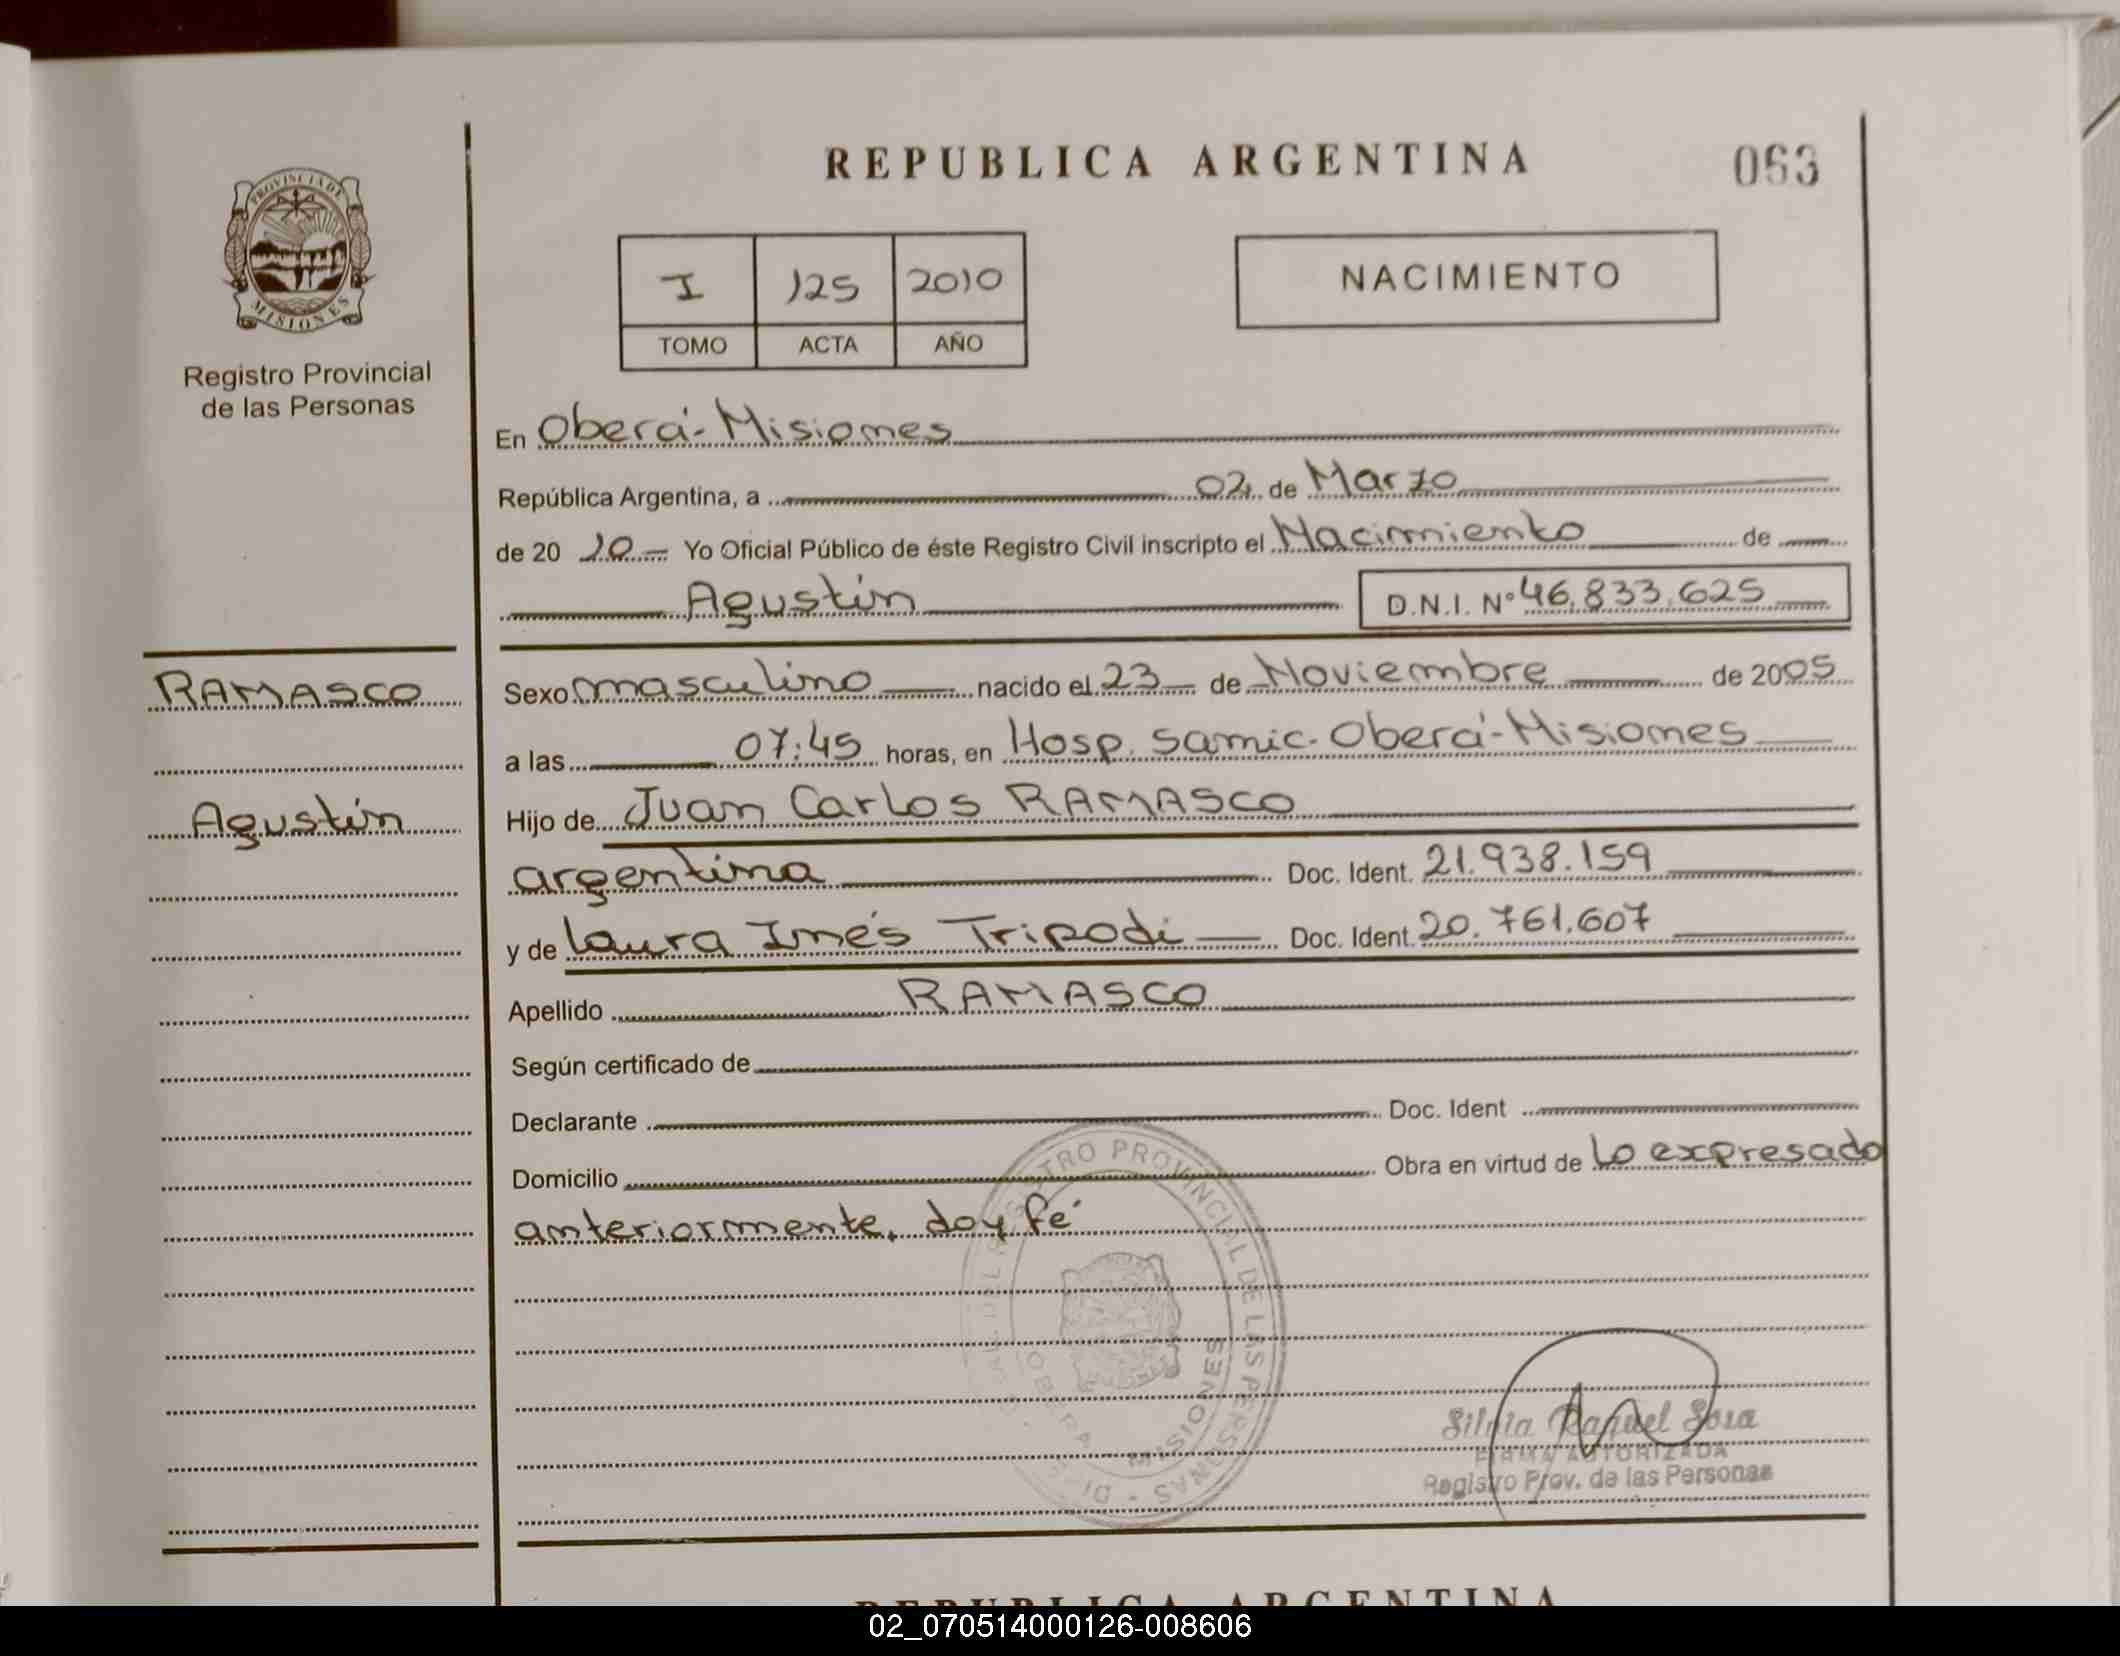 REPUBLICA ARGENTINA
063
PROVINCIA DE
MISIONES
Registro Provincial
de las Personas
I 125 2010
TOMO ACTA AÑO
NACIMIENTO
En Oberá-Misiones
República Argentina, a 02 de Marzo
de 20 10 Yo Oficial Público de éste Registro Civil inscripto el Nacimiento de
Agustín D.N.I. Nº 46.833.625
RAMASCO
Agustín
Sexo masculino nacido el 23 de Noviembre de 2005
a las 07:45 horas, en Hosp. Samic. Oberá-Misiones
Hijo de Juan Carlos RAMASCO
argentina Doc. Ident. 21.938.159
y de Laura Inés Tripodi Doc. Ident. 20.761.607
Apellido RAMASCO
Según certificado de
Declarante Doc. Ident
Domicilio Obra en virtud de Lo expresado
anteriormente, doy fé
REGISTRO PROVINCIAL DE LAS PERSONAS
OBERA MISIONES
Silvia Raquel Sosa
FIRMA AUTORIZADA
Registro Prov. de las Personas
REPUBLICA ARGENTINA
02_070514000126-008606